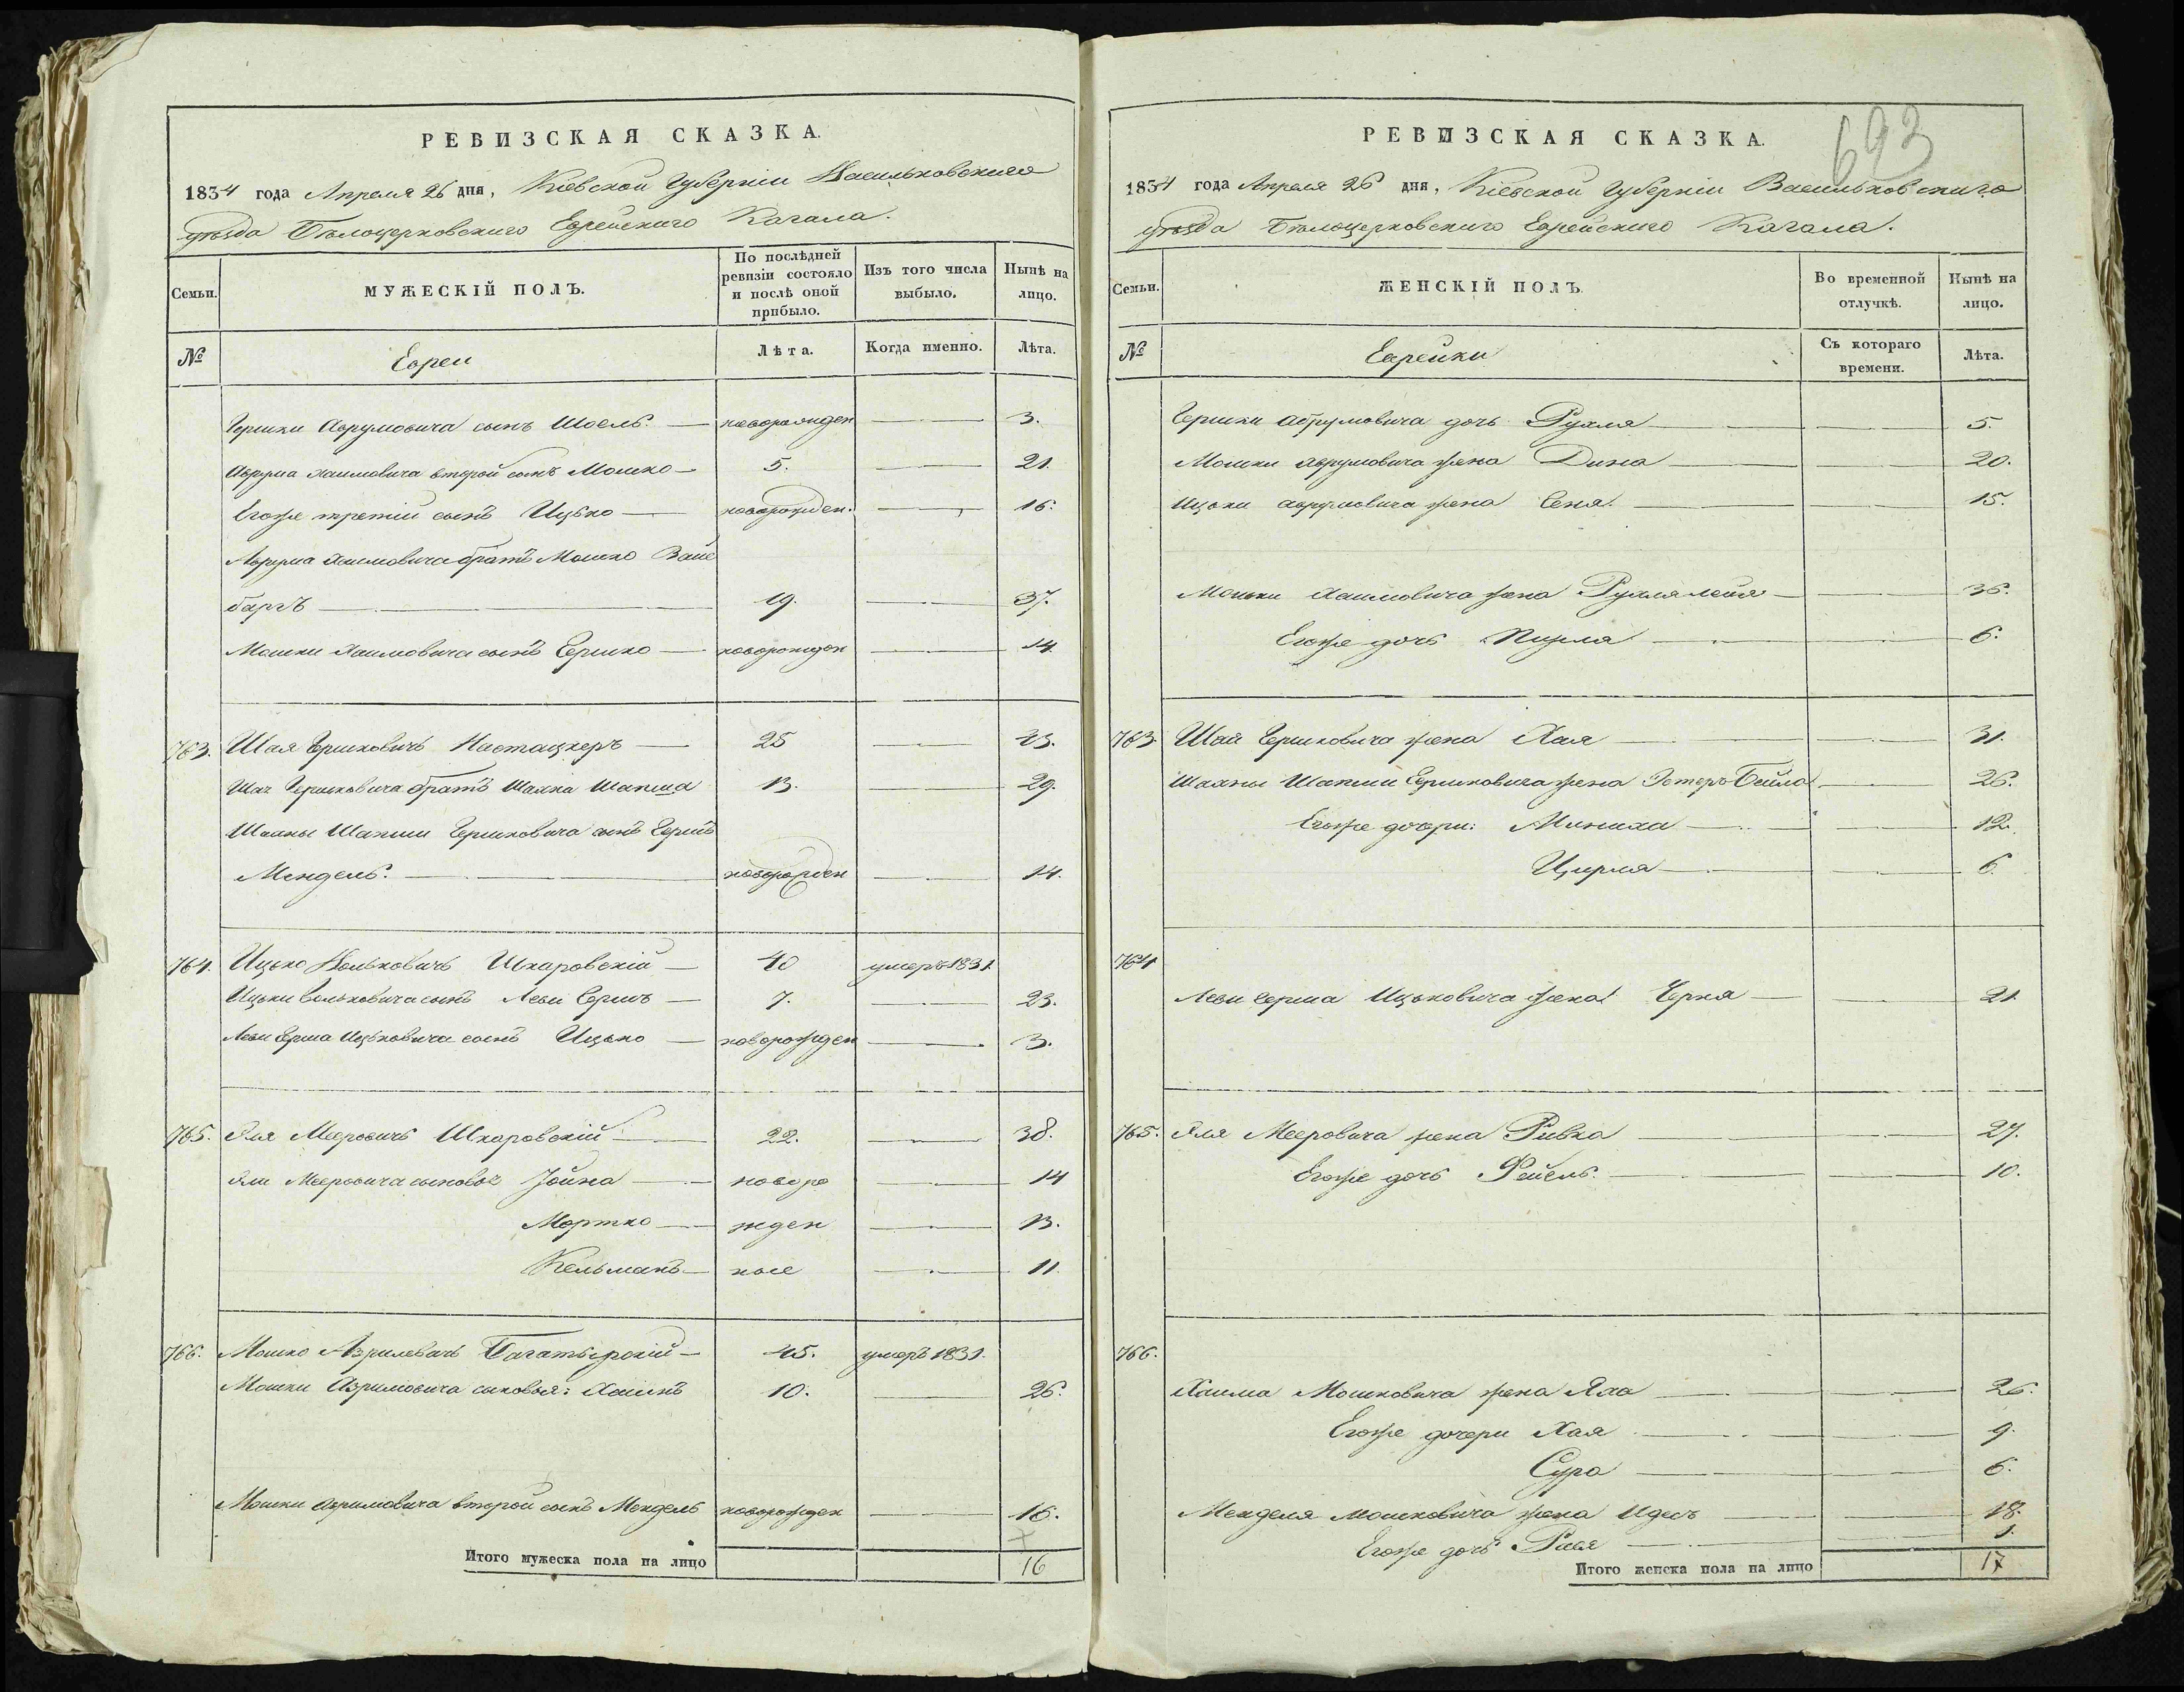 РЕВИЗСКАЯ СКАЗКА.
1834 года Апреля 26 дня, Кіевской Губерніи Васильковскаго
уѣзда Бѣлоцерковскаго Еврейскаго Кагала.
Семьи.
МУЖЕСКІЙ ПОЛЪ.
По послѣдней ревизіи состояло и послѣ оной прибыло.
Изъ того числа выбыло.
Нынѣ на лицо.
№
Евреи
Лѣта.
Когда именно.
Лѣта.
Гершки Аврумовича сынъ Шоель новорожден 3.
Аврума Хаимовича второй сынъ Мошко 5. 21.
Егоже третий сынъ Ицько новорожден. 16.
Аврума Хаимовича братъ Мошко Вайс
баргъ 19. 37.
Мошки Хаимовича сынъ Гершко новорожден 14.
763. Шая Гершковичъ 25 43.
Шаи Гершковича братъ Шахна Шапша 13. 29.
Шахны Шапши Гершковича сынъ Гершъ
Мендель новорожден 14.
764. Ицько Вольковичъ Шкаровскій 40 умеръ 1831
Ицьки Вольковича сынъ Леви Гершъ 7. 23.
Леви Герша Ицьковича сынъ Ицько новорожден 3.
765. Эля Мееровичъ Шкаровскій 22. 38.
Эли Мееровича сыновья Йойна новоро 14
Мортко жден 13.
Кельманъ ные 11.
766. Мошко Азрилевичъ Багатырскій 45. умеръ 1831.
Мошки Азриловича сыновья: Хаимъ 10. 26.
Мошки Азриловича второй сынъ Мендель новорожден 16.
Итого мужеска пола на лицо 16
693
РЕВИЗСКАЯ СКАЗКА.
1834 года Апреля 26 дня, Кіевской Губерніи Васильковскаго
уѣзда Бѣлоцерковскаго Еврейскаго Кагала.
Семьи.
ЖЕНСКІЙ ПОЛЪ.
Во временной отлучкѣ.
Нынѣ на лицо.
№
Еврейки
Съ котораго времени.
Лѣта.
Гершки Аврумовича дочь Рухля 5.
Мошки Аврумовича жена Дина 20.
Ицьки Аврумовича жена Сеня 15.
Мошки Хаимовича жена Рухля Лея 36.
Егоже дочь 6.
763. Шаи Гершковича жена Хая 31.
Шахны Шапши Гершковича жена Эстеръ Бейла 26.
Егоже дочери: Миниха 12.
Цирля 6.
764
Леви Герша Ицьковича жена Черня 21
765. Эля Мееровича жена Ривка 27.
Егоже дочь Рейель 10.
766.
Хаима Мошковича жена Яха 26.
Егоже дочери Хая 9.
Сура 6.
Менделя Мошковича жена Идесъ 18.
Егоже дочь 1.
Итого женска пола на лицо 17